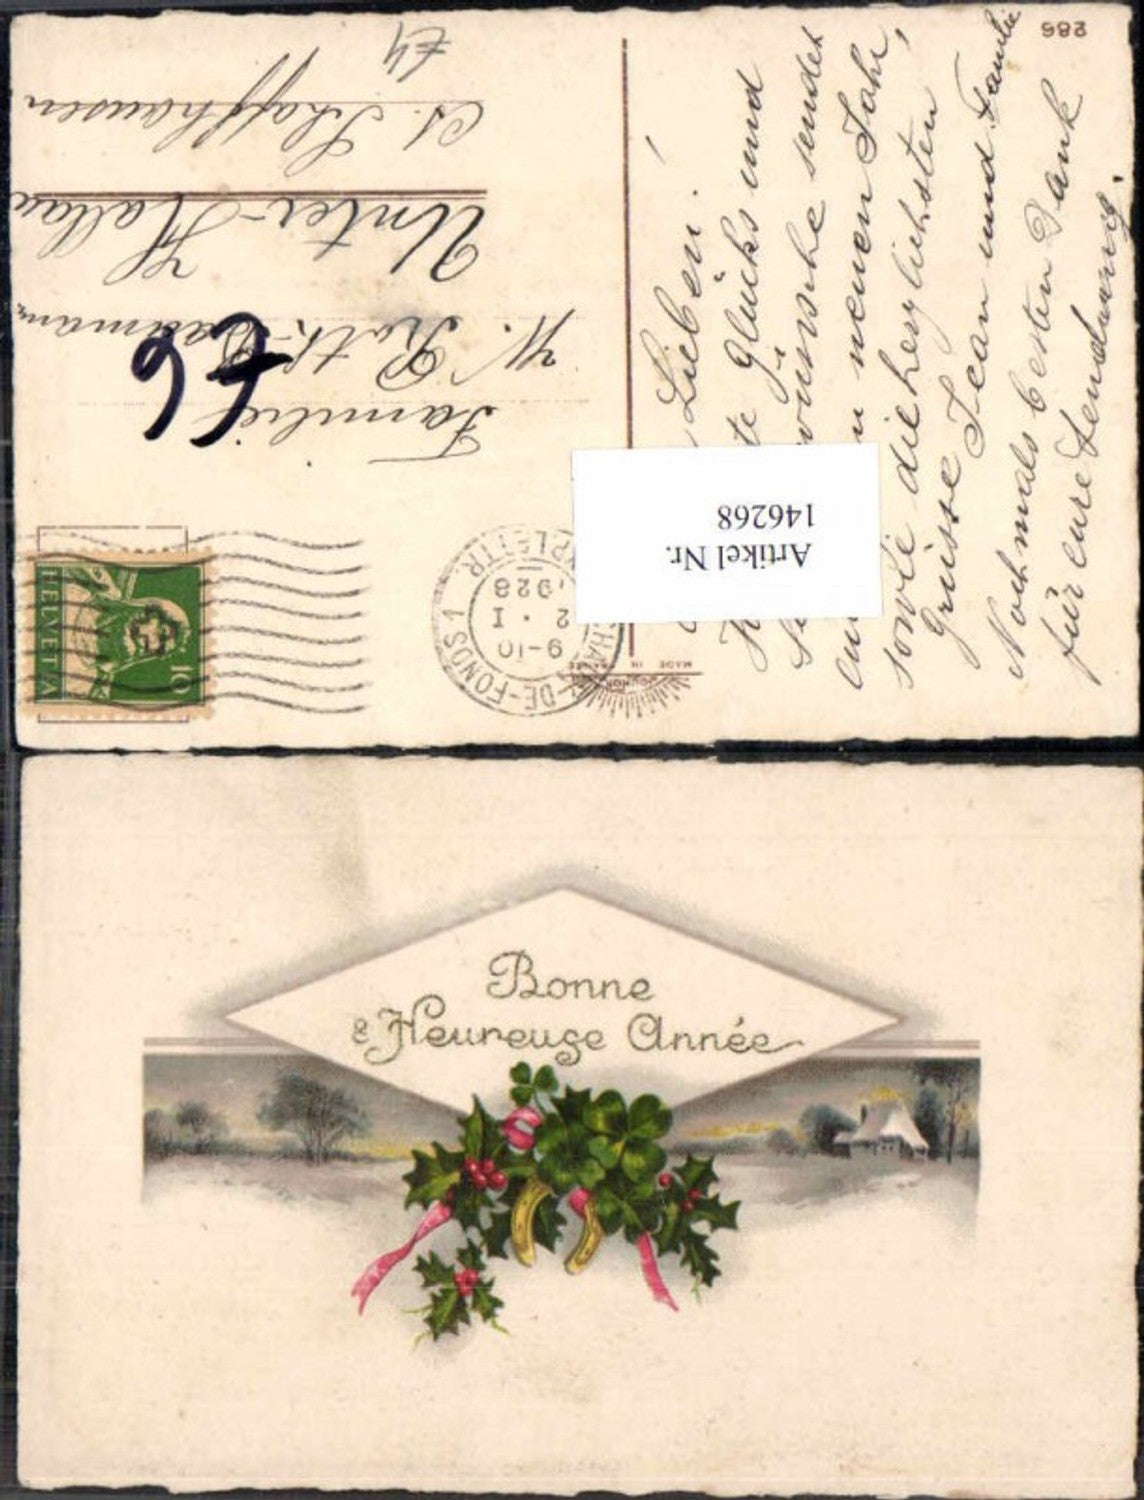 266
Familie
W. Roth-
Unter-Hallau
Ct. Schaffhausen
Lieben!
Glücks und
sendet
neuen Jahr,
sowie die herzlichsten
Grüsse Jean und Familie
Nochmals besten Dank
für eure Sendung.
Artikel Nr.
146268
HELVETIA
10
-DE-FONDS 1
9-10
2.I
1928
MADE IN
E6
Bonne
& Heureuse Année